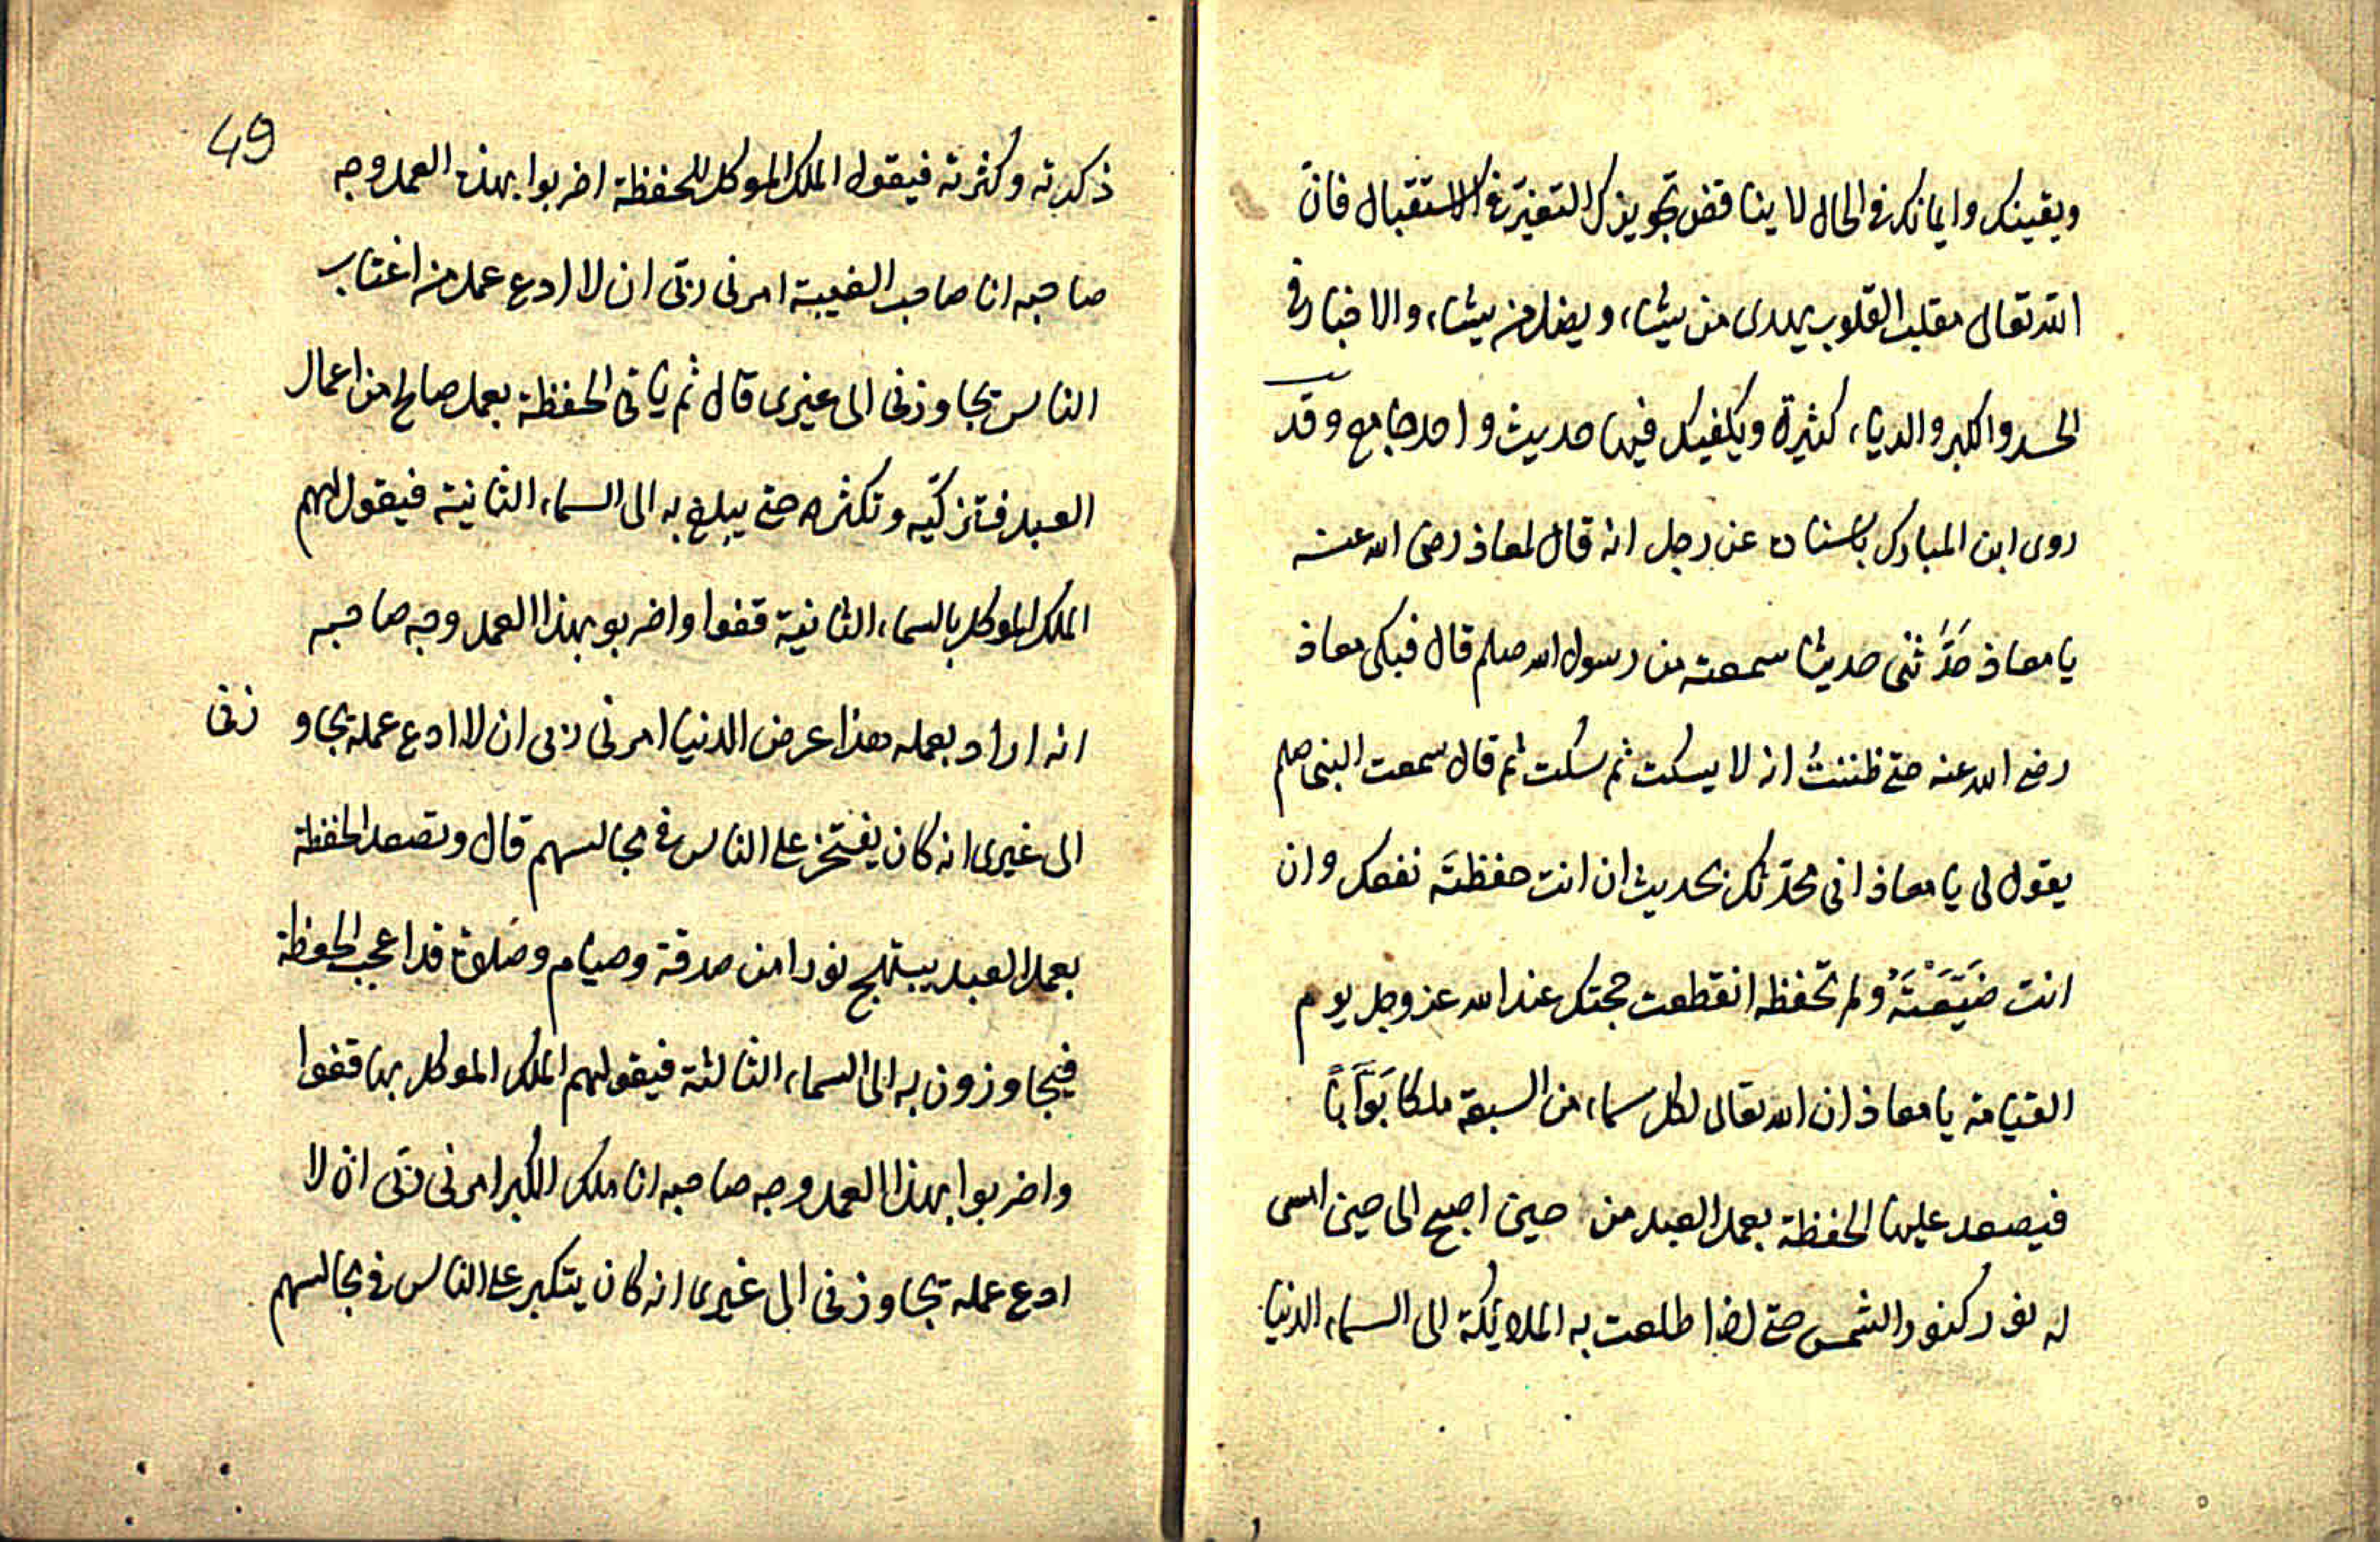 ويقينك وايمانك في الحال لا يناقض تجويزك التغيّر في الاستقبال فانّ
الله تعالى مقلب القلوب يهدى من يشاء ويضل من يشاء والاخبار في
الحسد والكبر والرياء كثيرة ويكفيك فيها حديث واحد جامع وقد
روى ابن المبارك باسناده عن رجل انه قال لمعاذ رضى الله عنه
يا معاذ حَدِّثنى حديثا سمعته من رسول الله صلعم قال فبكى معاذ
رضى الله عنه حتى ظننتُ انه لا يسكت ثم سكت ثم قال سمعت النبى صلعم
يقول لى يا معاذ انى محدّثك بحديث ان انت حفظتَه نفعك وان
انت ضَيَّعْتَهُ ولم تحفظه انقطعت حجتك عند الله عز وجل يوم
القيامة يا معاذ ان الله تعالى لكل سماء من السبعة ملكا بَوَّاباً
فيصعد عليها الحفظة بعمل العبد من حين اصبح الى حين امسى
له نور كنور الشمس حتى اذا طلعت به الملايكة الى السماء الدنيا
49
ذكرته وكثرته فيقول الملك الموكل للحفظة اضربوا بهذا العمل وجه
صاحبه انا صاحب الغيبة امرنى ربّى ان لا ادع عمل من اغتاب
الناس يجاوزنى الى غيرى قال ثم ياتى الحفظة بعمل صالح من اعمال
العبد فتزكّيه وتكثره حتى يبلغ به الى السماء الثانية فيقول لهم
الملك الموكل بالسماء الثانية قفوا واضربو بهذا العمل وجه صاحبه
انه اراد بعمله هذا عرض الدنيا امرنى ربى ان لا ادع عمله يجاو زنى
الى غيرى انه كان يفتخر على الناس في مجالسهم قال وتصعد الحفظة
بعمل العبد يبتهج نورا من صدقة وصيام وصلوة قد اعجب الحفظة
فيجاوزون به الى السماء الثالثة فيقول لهم الملك الموكل بها قفوا
واضربوا بهذا العمل وجه صاحبه انا ملك الكبر امرنى ربّى ان لا
ادع عمله يجاوزنى الى غيرى انه كان يتكبر على الناس في مجالسهم